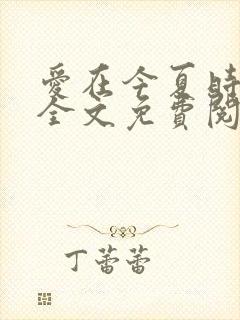 愛在今夏時
全文免費閱
丁蕾蕾